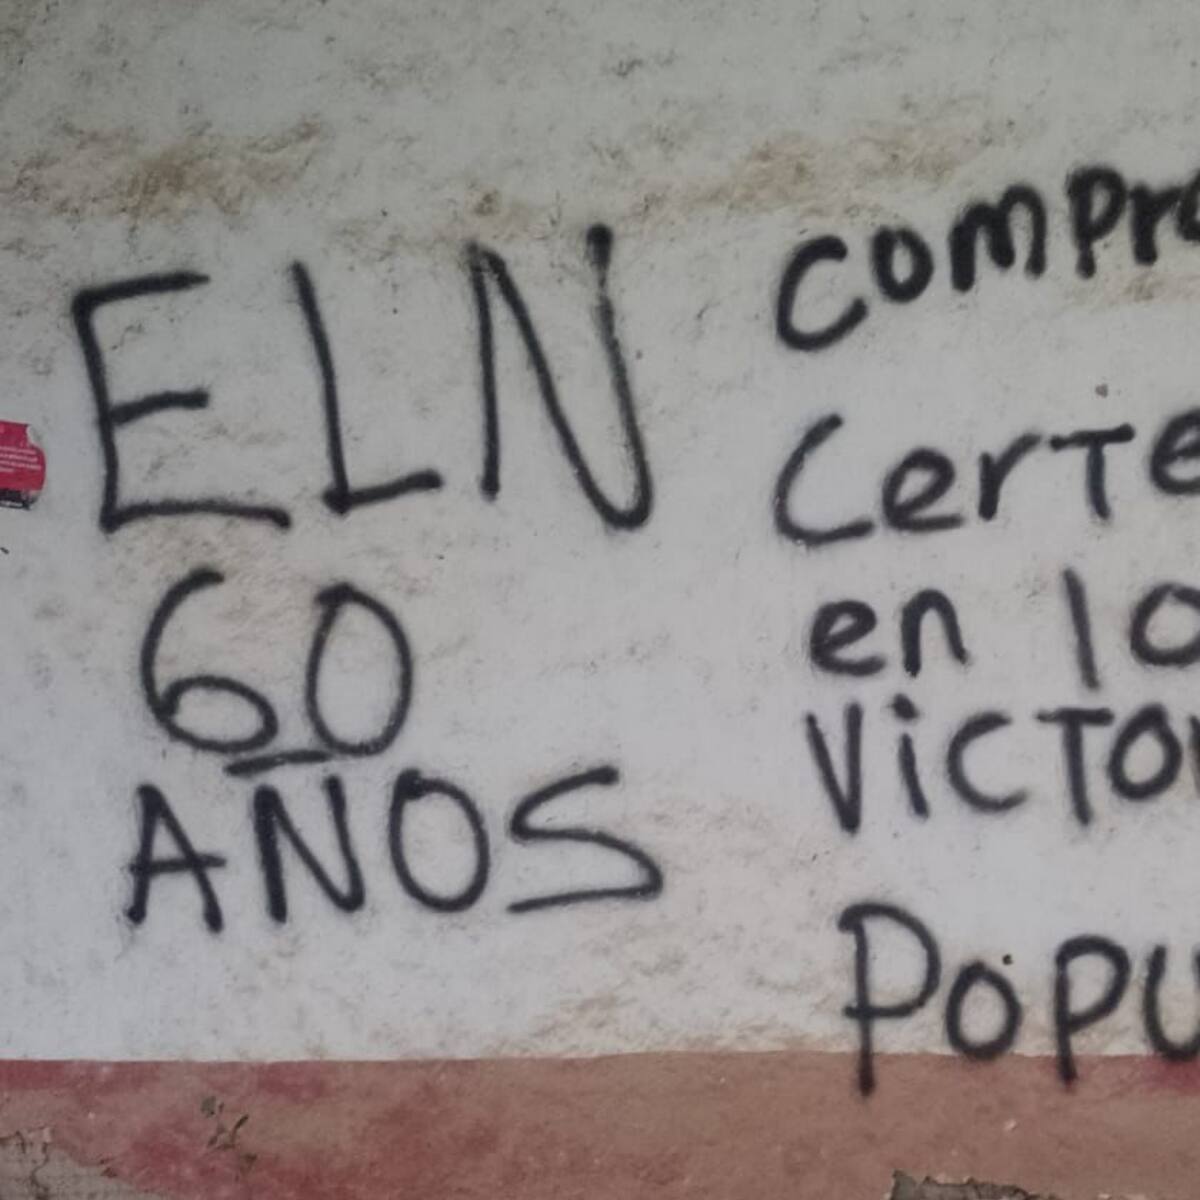 ELN
60
AÑOS
compro
CerTe
en la
VicTor
Popu